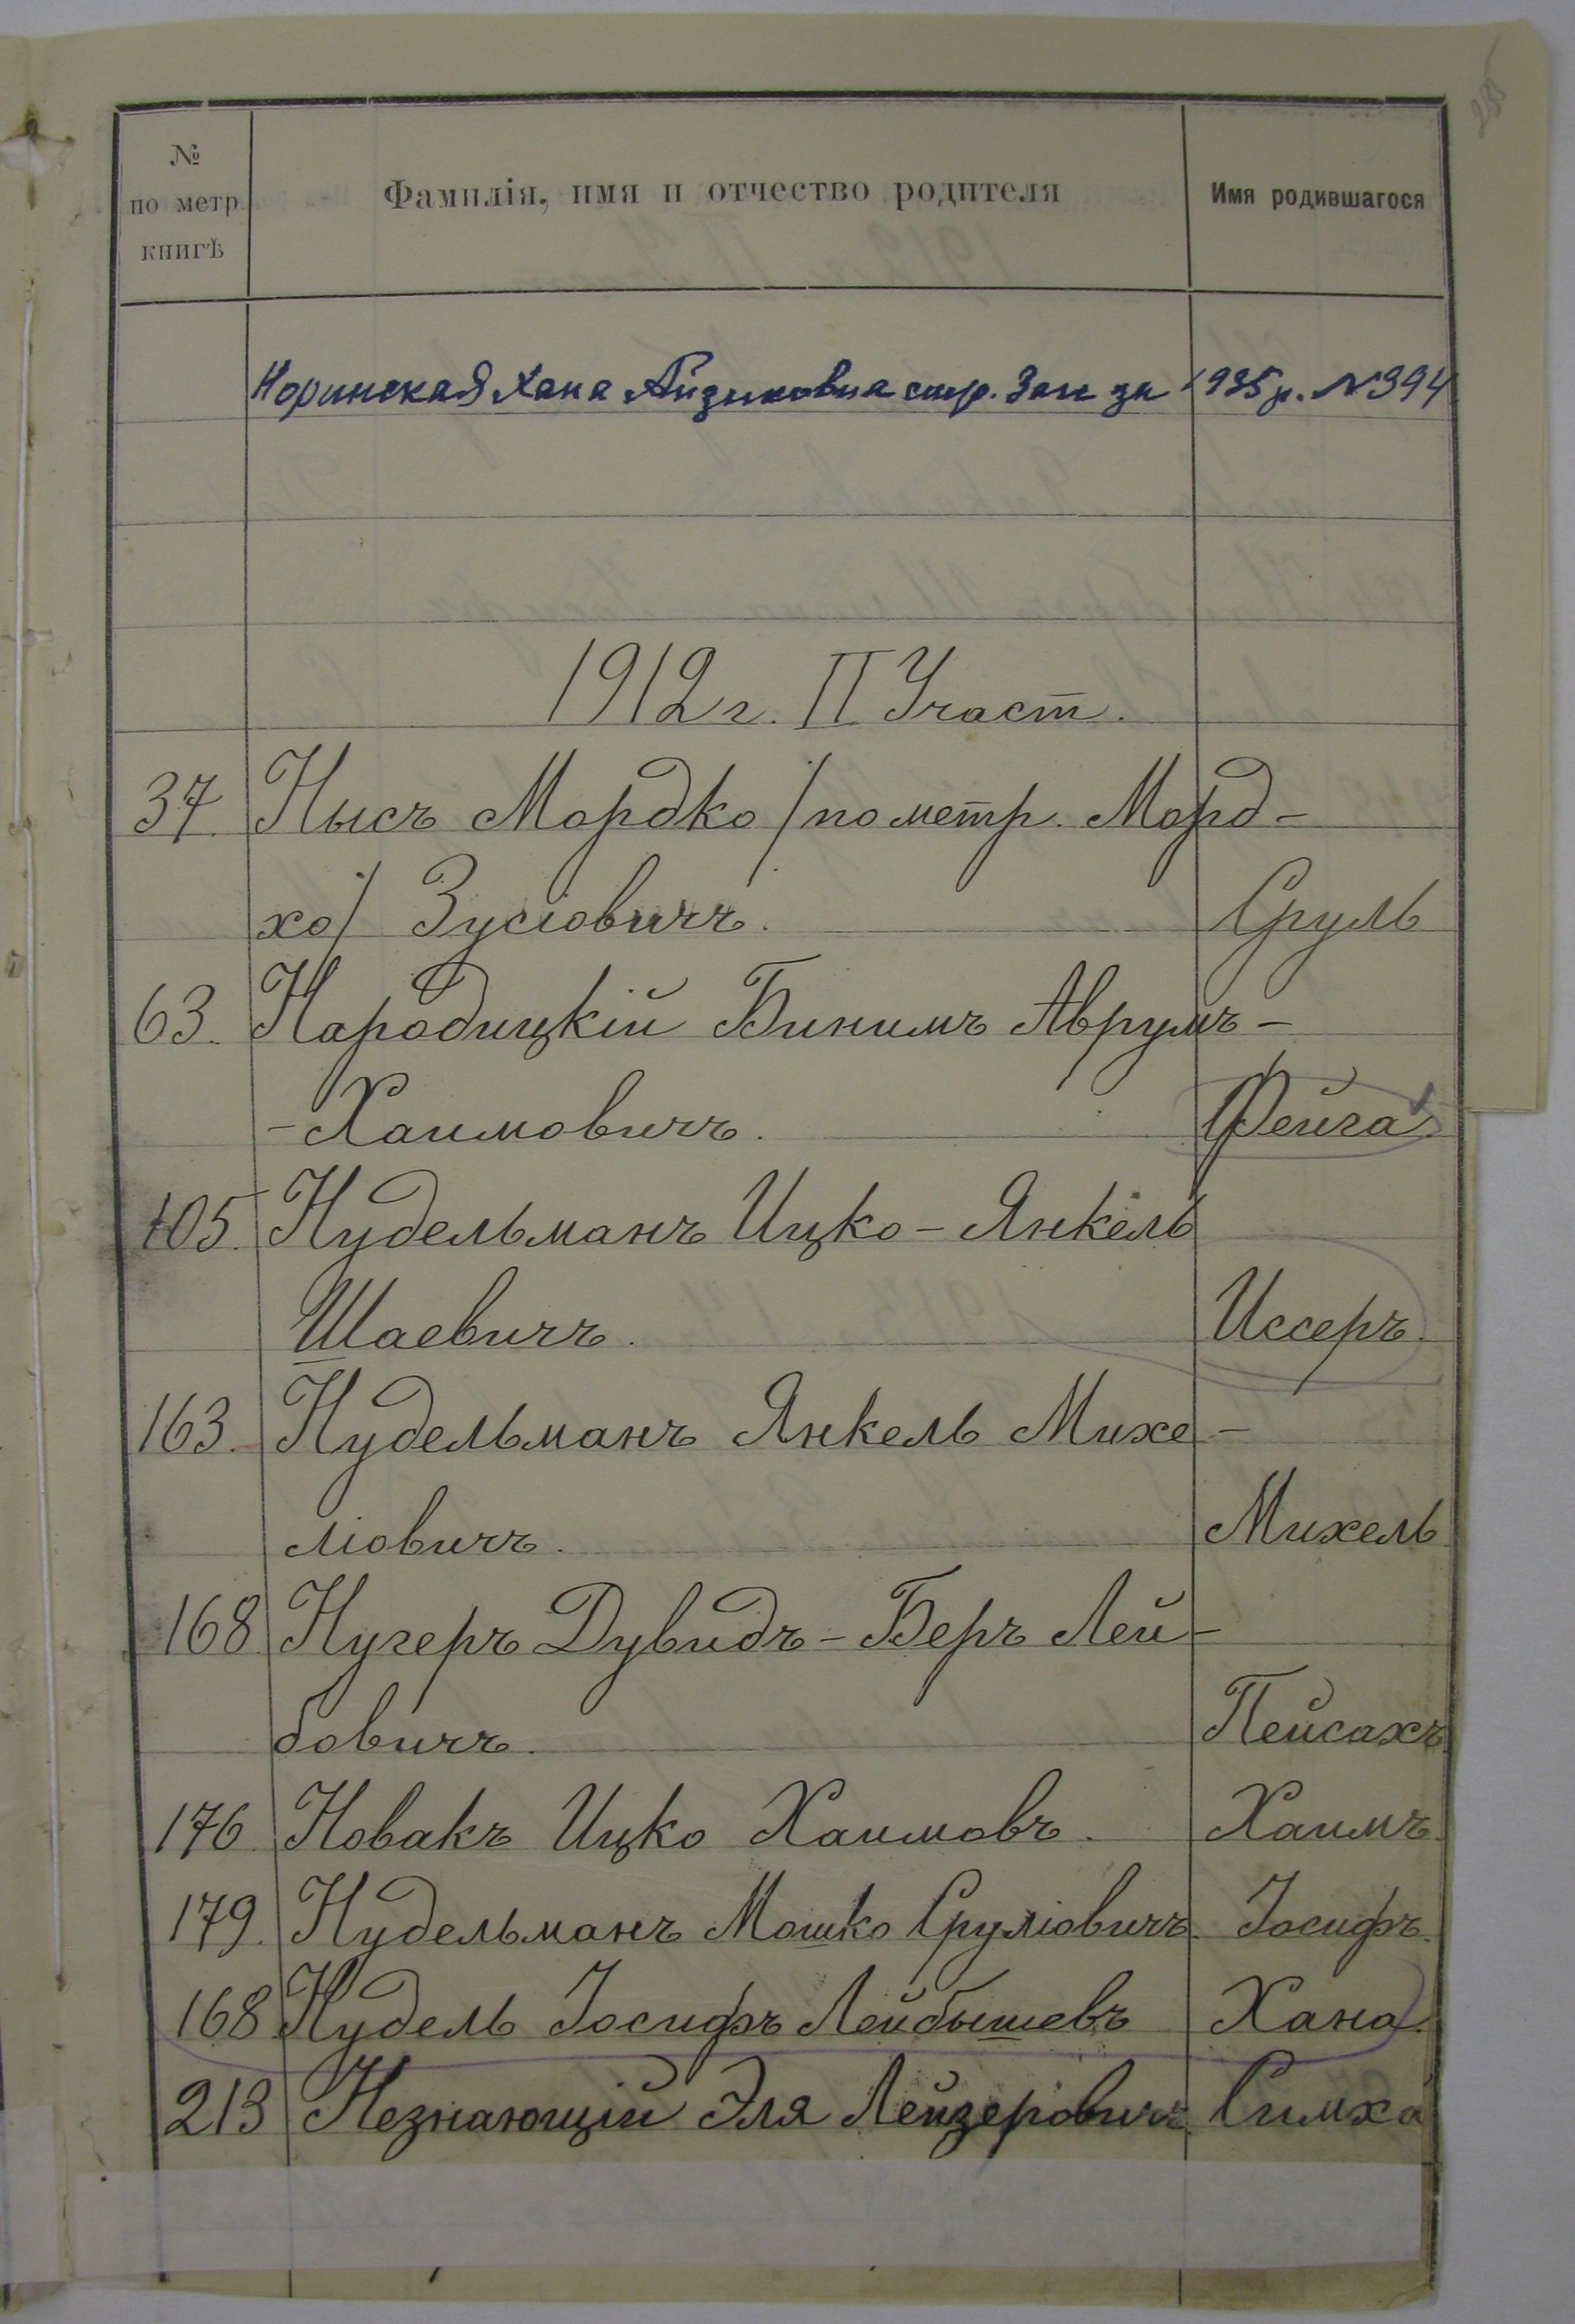 235
№
по метр.
книгѣ
Фамилія, имя и отчество родителя
Имя родившагося
Норинская Хана Айзиковна стр. Зап за 1935 р. №394
1912 г. II Участ.
37. Нысъ Мордко /по метр. Морд-
хо/ Зусіовичъ. Сруль
63. Народицкій Бинимъ Аврумъ-
-Хаимовичъ. Фейга
105. Нудельманъ Ицко-Янкель
Шаевичъ. Иссеръ.
163. Нудельманъ Янкель Михе-
ліовичъ. Михель
168 Нугеръ Дувидъ-Беръ Лей-
бовичъ. Пейсахъ.
176 Новакъ Ицко Хаимовъ. Хаимъ.
179. Нудельманъ Мошко Груліовичъ. Іосифъ.
168 Нудель Іосифъ Лейбышевъ Хана.
213 Незнающій Эля Лейзеровичъ Симха